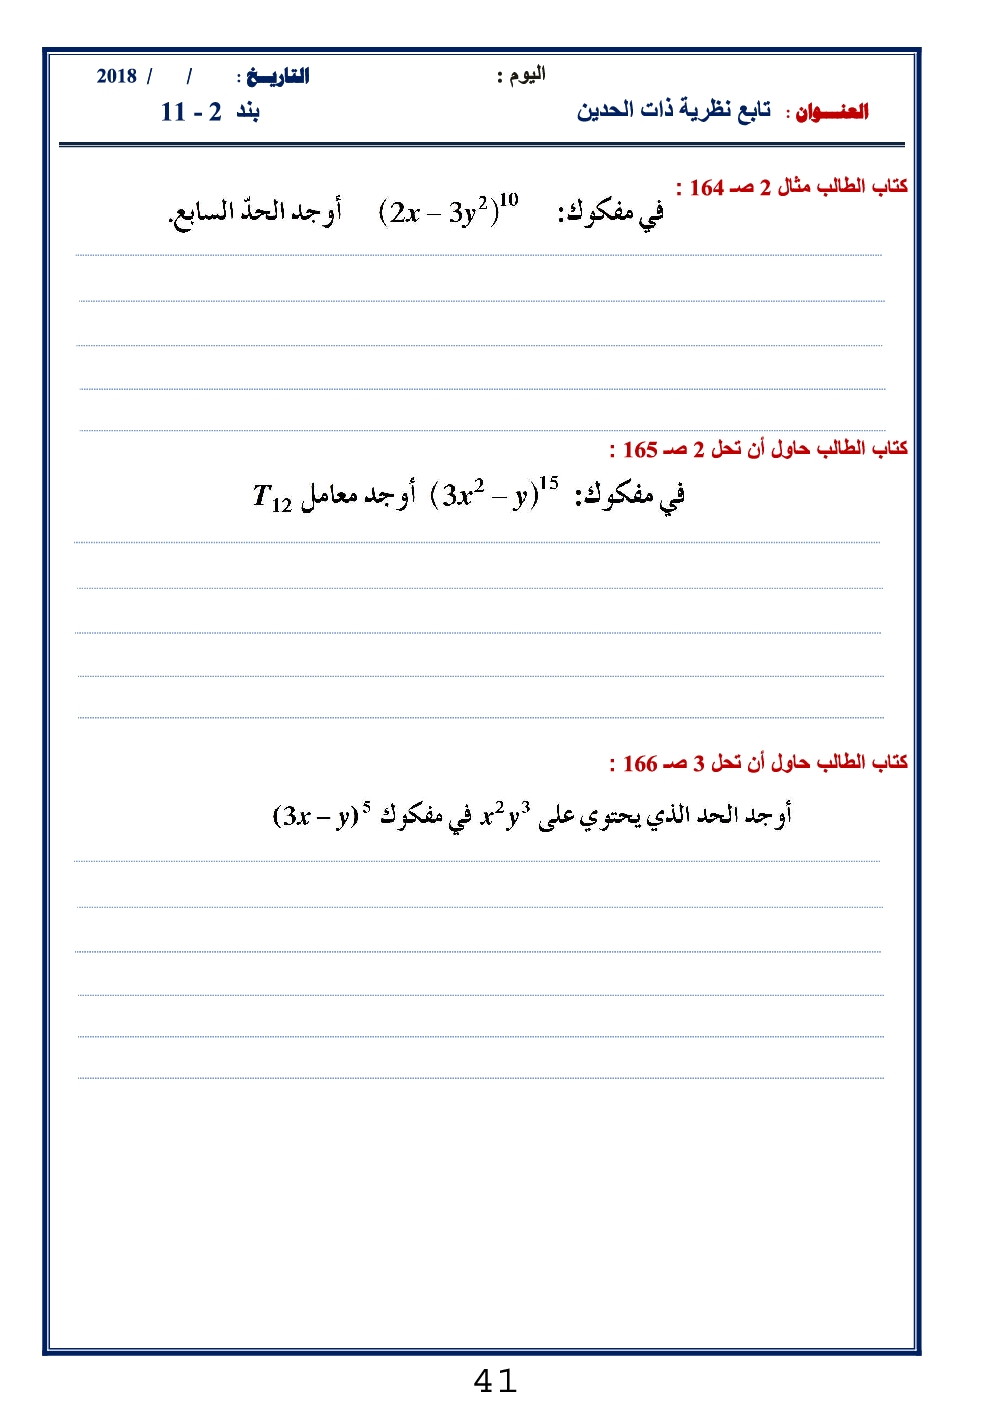 اليوم : التاريـــخ : / / 2018
العنـــــوان : تابع نظرية ذات الحدين بند 2 - 11
كتاب الطالب مثال 2 صـ 164 :
في مفكوك: (2x – 3y²)¹⁰ أوجد الحدّ السابع.
كتاب الطالب حاول أن تحل 2 صـ 165 :
في مفكوك: (3x² – y)¹⁵ أوجد معامل T₁₂
كتاب الطالب حاول أن تحل 3 صـ 166 :
أوجد الحد الذي يحتوي على x²y³ في مفكوك (3x – y)⁵
41